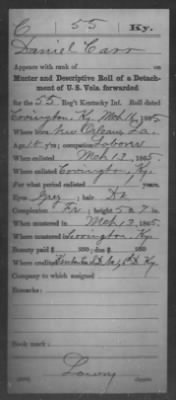 C 55 Ky.
Daniel Carr
Appears with rank of
Muster and Descriptive Roll of a Detach-
ment of U. S. Vols. forwarded
for the 55 Reg't Kentucky Inf. Roll dated
Covington, Ky. Mch 16, 1865
Where born New Orleans La.
Age 18 y'rs; occupation Laborer
When enlisted Mch 13, 1865.
Where enlisted Covington, Ky.
For what period enlisted years.
Eyes Gray; hair Dk
Complexion Fr; height 5 ft. 7 in.
When mustered in Mch 13, 1865.
Where mustered in Covington, Ky.
Bounty paid $ 100; due $ 100
Where credited Kenton Ky.
Company to which assigned
Remarks:
Book mark:
Lowry